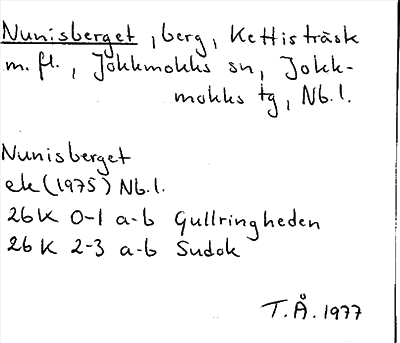 Nunisberget, berg, Kettisträsk
m.fl., Jokkmokks sn, Jokk-
mokks tg, Nb.l.
Nunisberget
ek (1975) Nb.l.
26K 0-1 a-b Gullringheden
26K 2-3 a-b Sudok
T.Å. 1977